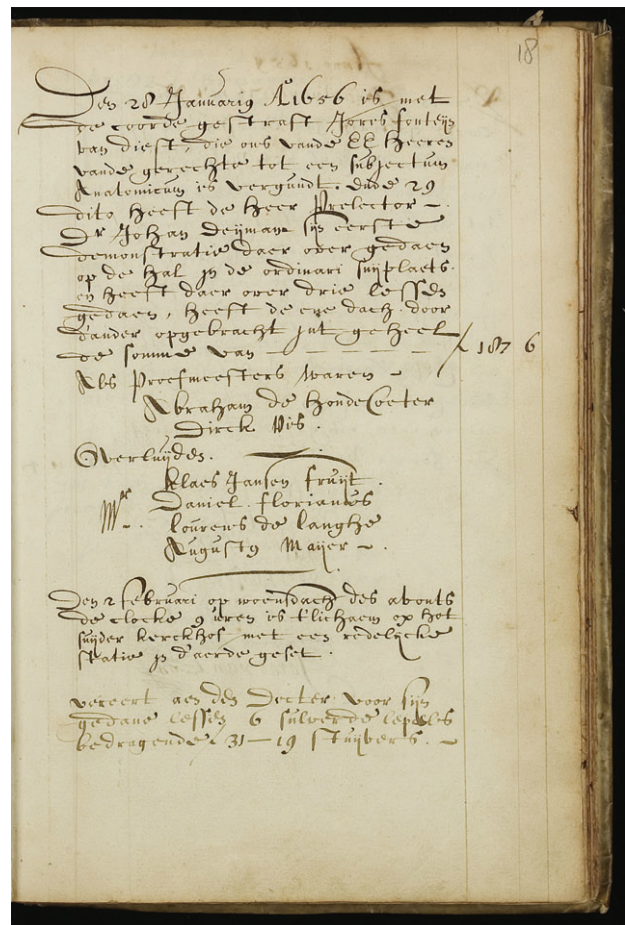 18
Den 28 Januarij Ao 1656 is met
de coorde gestraft Joris fonteijn
van diest, die ons vande EE Heeren
vande gerechte tot een subjectum
Anatomicum is vergundt, ende 29
dito heeft de Heer Prelector -.
Dr Johan Deijman sijn eerste
demonstratie daer over gedaen
op de hal jn de ordinari snijplaets.
en heeft daer over drie lessen
gedaen, heeft de ene dach door
d'ander opgebracht jnt geheel
de somme van — — — — — 187 6
Als Proefmeesters waren -
Abraham de hondeCoeter
Dirck Vis.
Overluijden.
Klaes Jansen fruijt.
Mrs. Daniel florianus
lourens de langhe
Augustij Maijer -.
Den 2 februari op woensdach des avonts
de clocke 9 uren is t'lichaem op het
suijder kerckhof met een redelijcke
statie jn d'aerde geset.
vereert aen den Docter voor sijn
gedane lessen 6 silverde lepels
bedragende 31—19 stuijvers. -